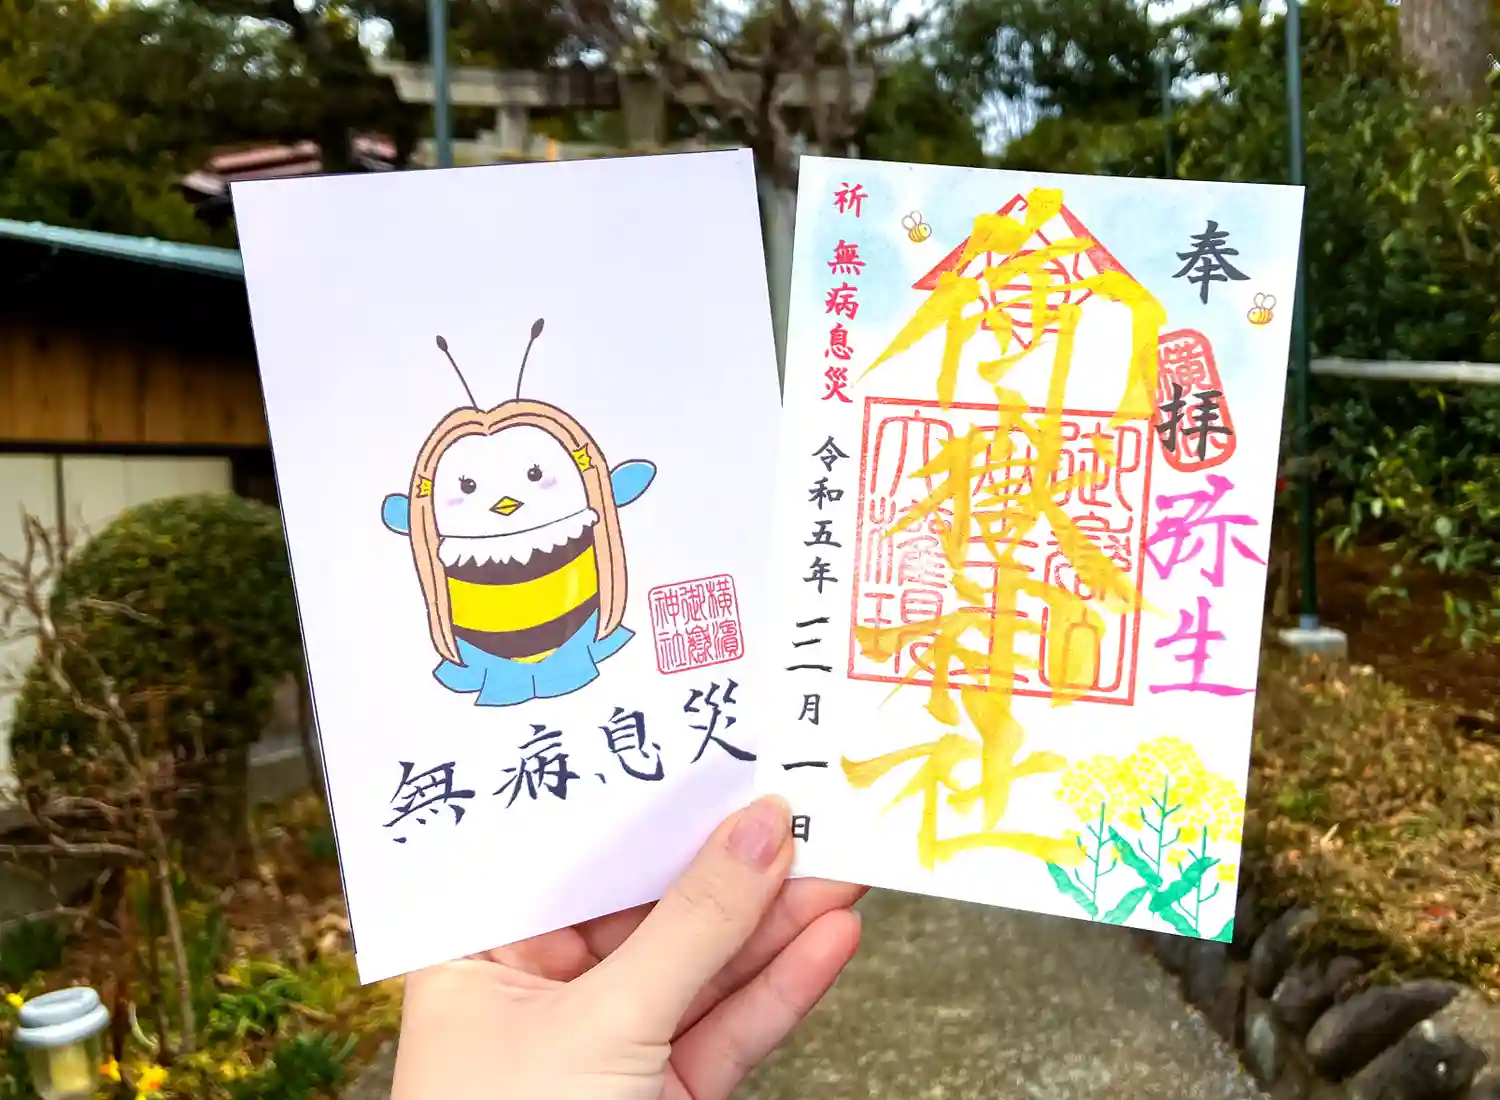 無病息災
横濱
御嶽
神社
奉拝
横
弥生
御嶽神社
御嶽山
大権現
祈 無病息災
令和五年三月一日